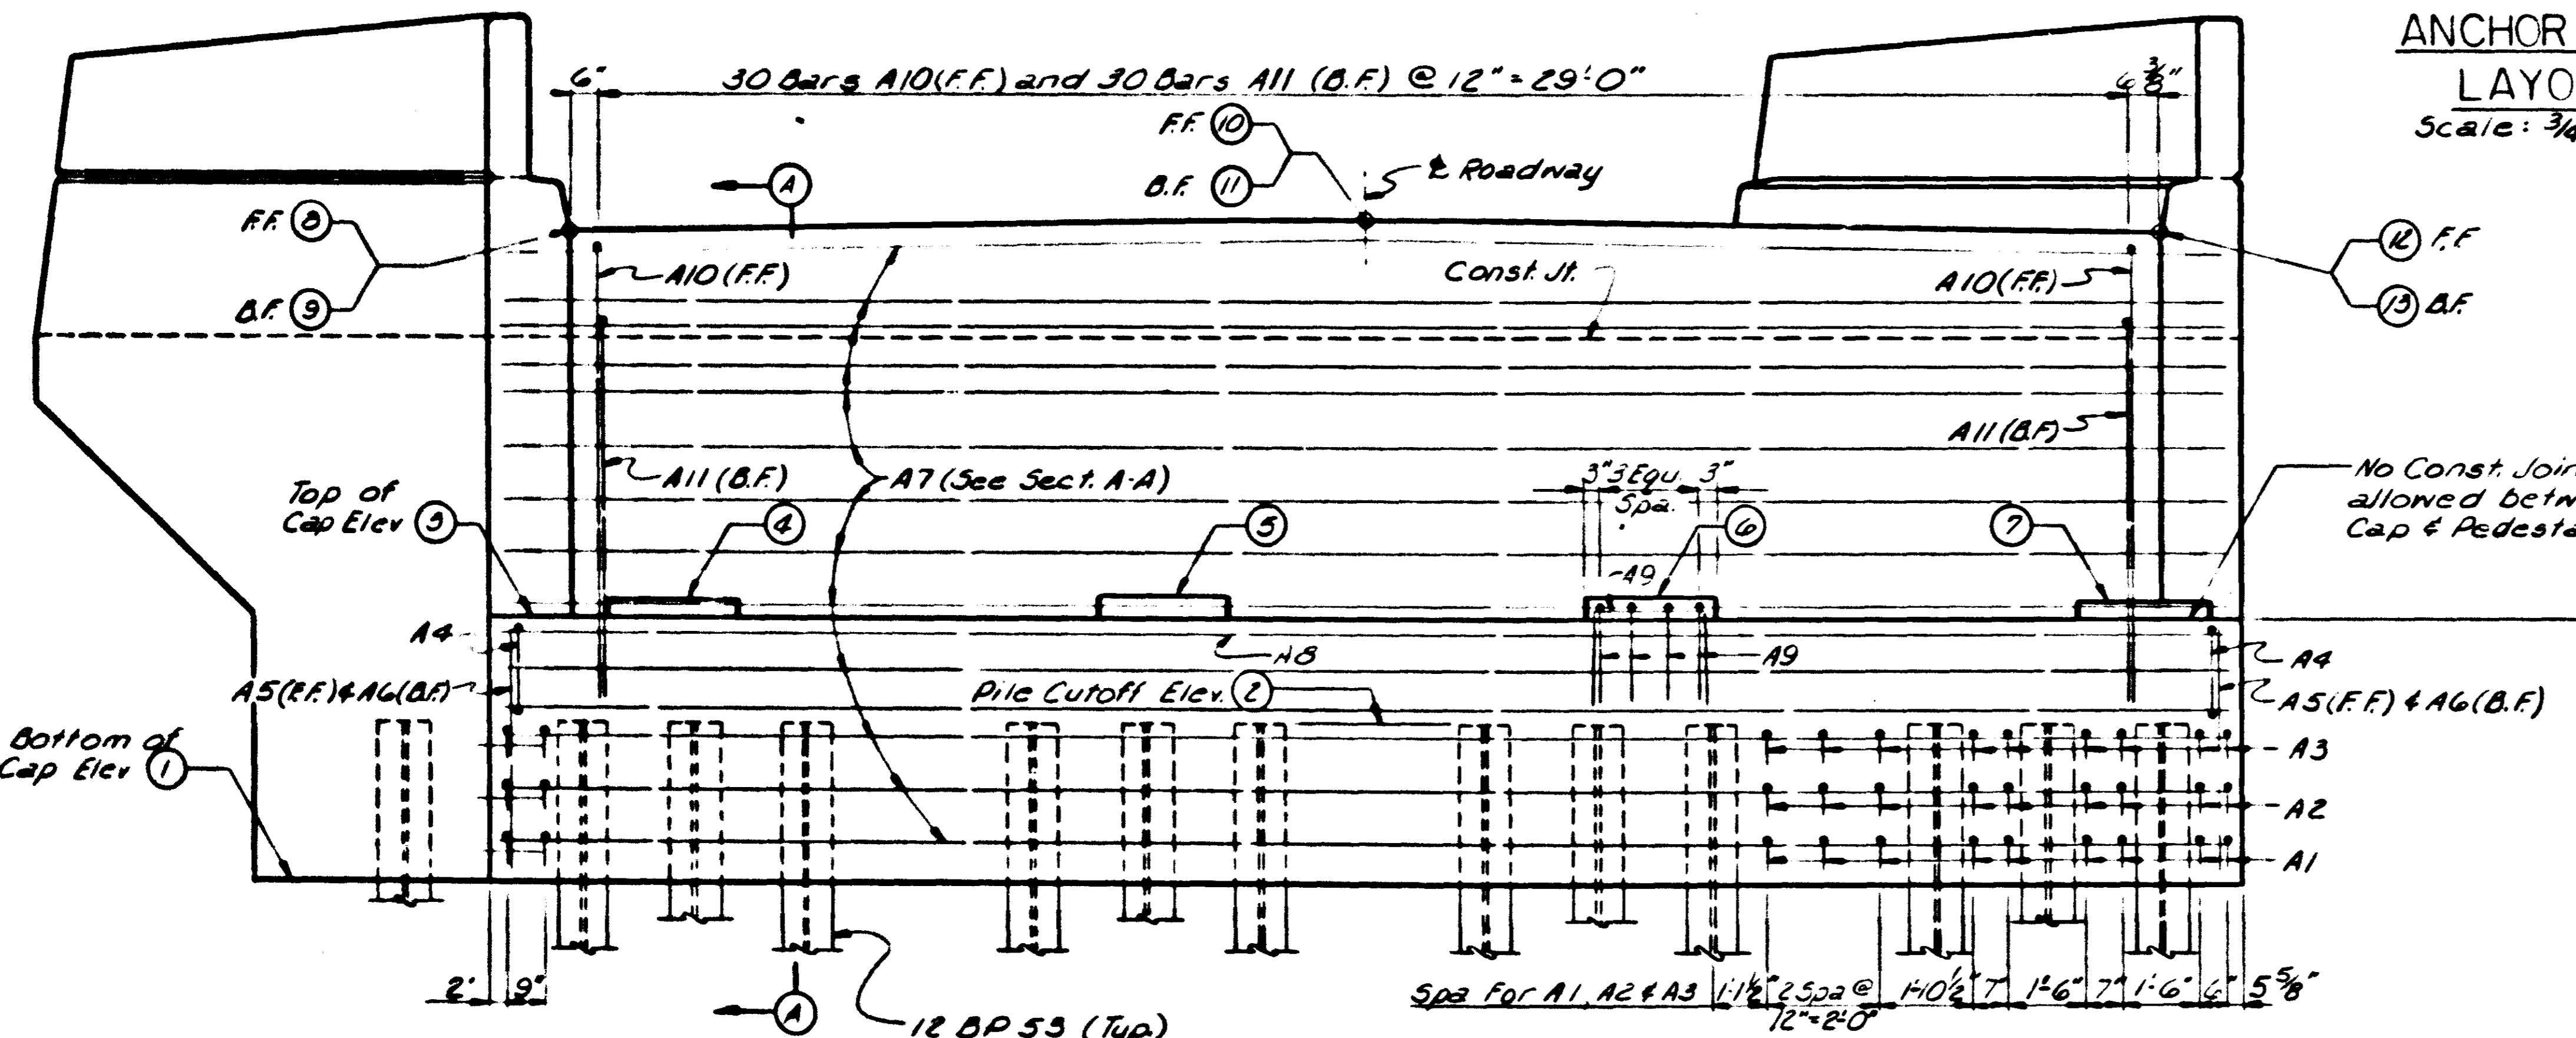 ANCHOR
LAYO
Scale: 3/4
6"
30 Bars A10(F.F.) and 30 Bars A11 (B.F.) @ 12" = 29'-0"
6 3/8"
F.F. 10
B.F. 11
A
℄ Roadway
F.F. 8
B.F. 9
12 F.F.
13 B.F.
A10 (F.F.)
Const. Jt.
A10 (F.F.)
A11 (B.F.)
A11 (B.F.)
A7 (See Sect. A-A)
3" 3 Equ. 3"
Spa.
No Const. Join
allowed betw
Cap & Pedesta
Top of
Cap Elev 3
4
5
6
7
A9
A4
A8
A9
A4
A5(F.F.) & A6(B.F.)
Pile Cutoff Elev. 2
A5(F.F.) & A6(B.F.)
Bottom of
Cap Elev 1
A3
A2
A1
2"
9"
A
12 BP 53 (Typ.)
Spa For A1, A2 & A3
1'-1 1/2"
2 Spa @
12" = 2'-0"
1'-10 1/2"
7"
1'-6"
7"
1'-6"
6"
5 5/8"